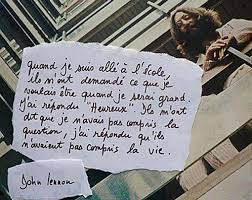 quand je suis allé à l'école,
ils m'ont demandé ce que je
voulais être quand je serai grand.
j'ai répondu "Heureux". Ils m'ont
dit que je n'avais pas compris la
question, j'ai répondu qu'ils
n'avaient pas compris la vie.
John Lennon